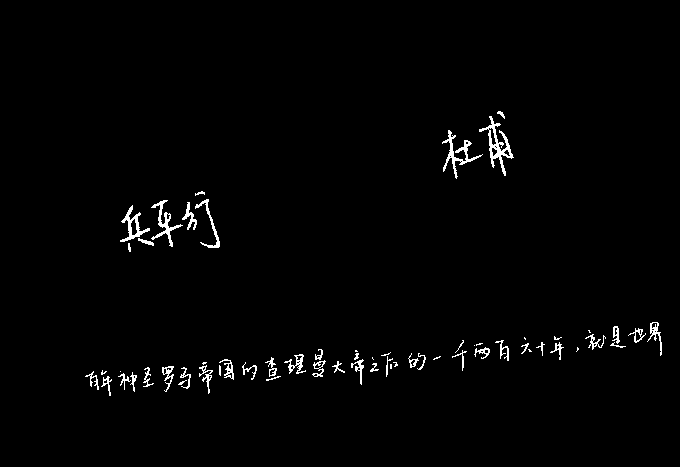 杜甫
兵车行
百年神圣罗马帝国的查理曼大帝之后的一千两百六十年，就是世界